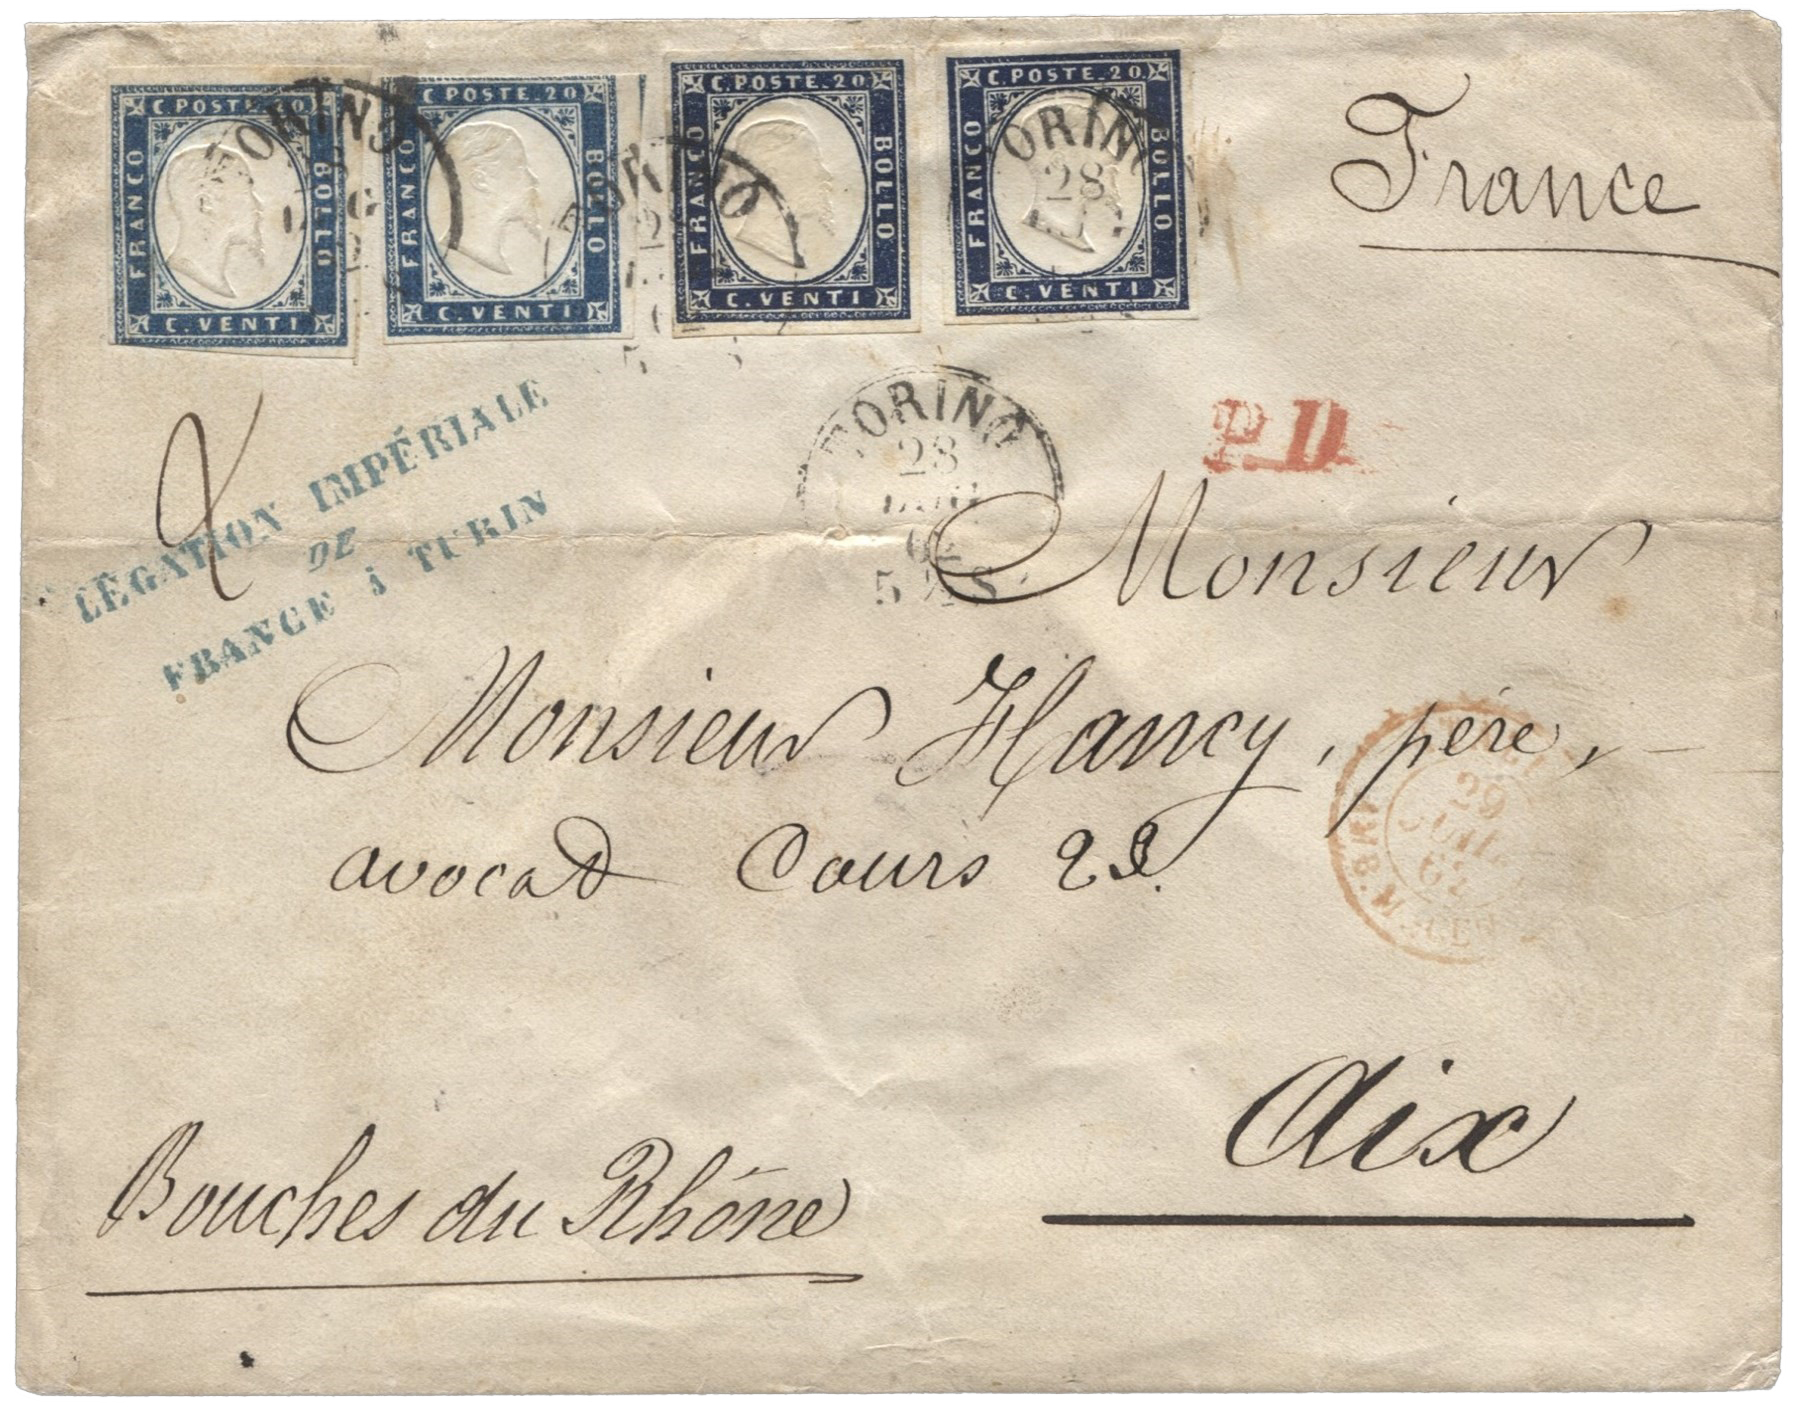 C. POSTE. 20
FRANCO
BOLLO
C. VENTI
C. POSTE. 20
FRANCO
BOLLO
C. VENTI
C. POSTE. 20
FRANCO
BOLLO
C. VENTI
C. POSTE. 20
FRANCO
BOLLO
C. VENTI
TORINO
TORINO
TORINO
28
France
2
LÉGATION IMPÉRIALE
DE
FRANCE à TURIN
TORINO
28
62
5 S
P.D
Monsieur
Monsieur Hancy, père,
avocat Cours 22.
29
JUIL.
62
Aix
Bouches du Rhône